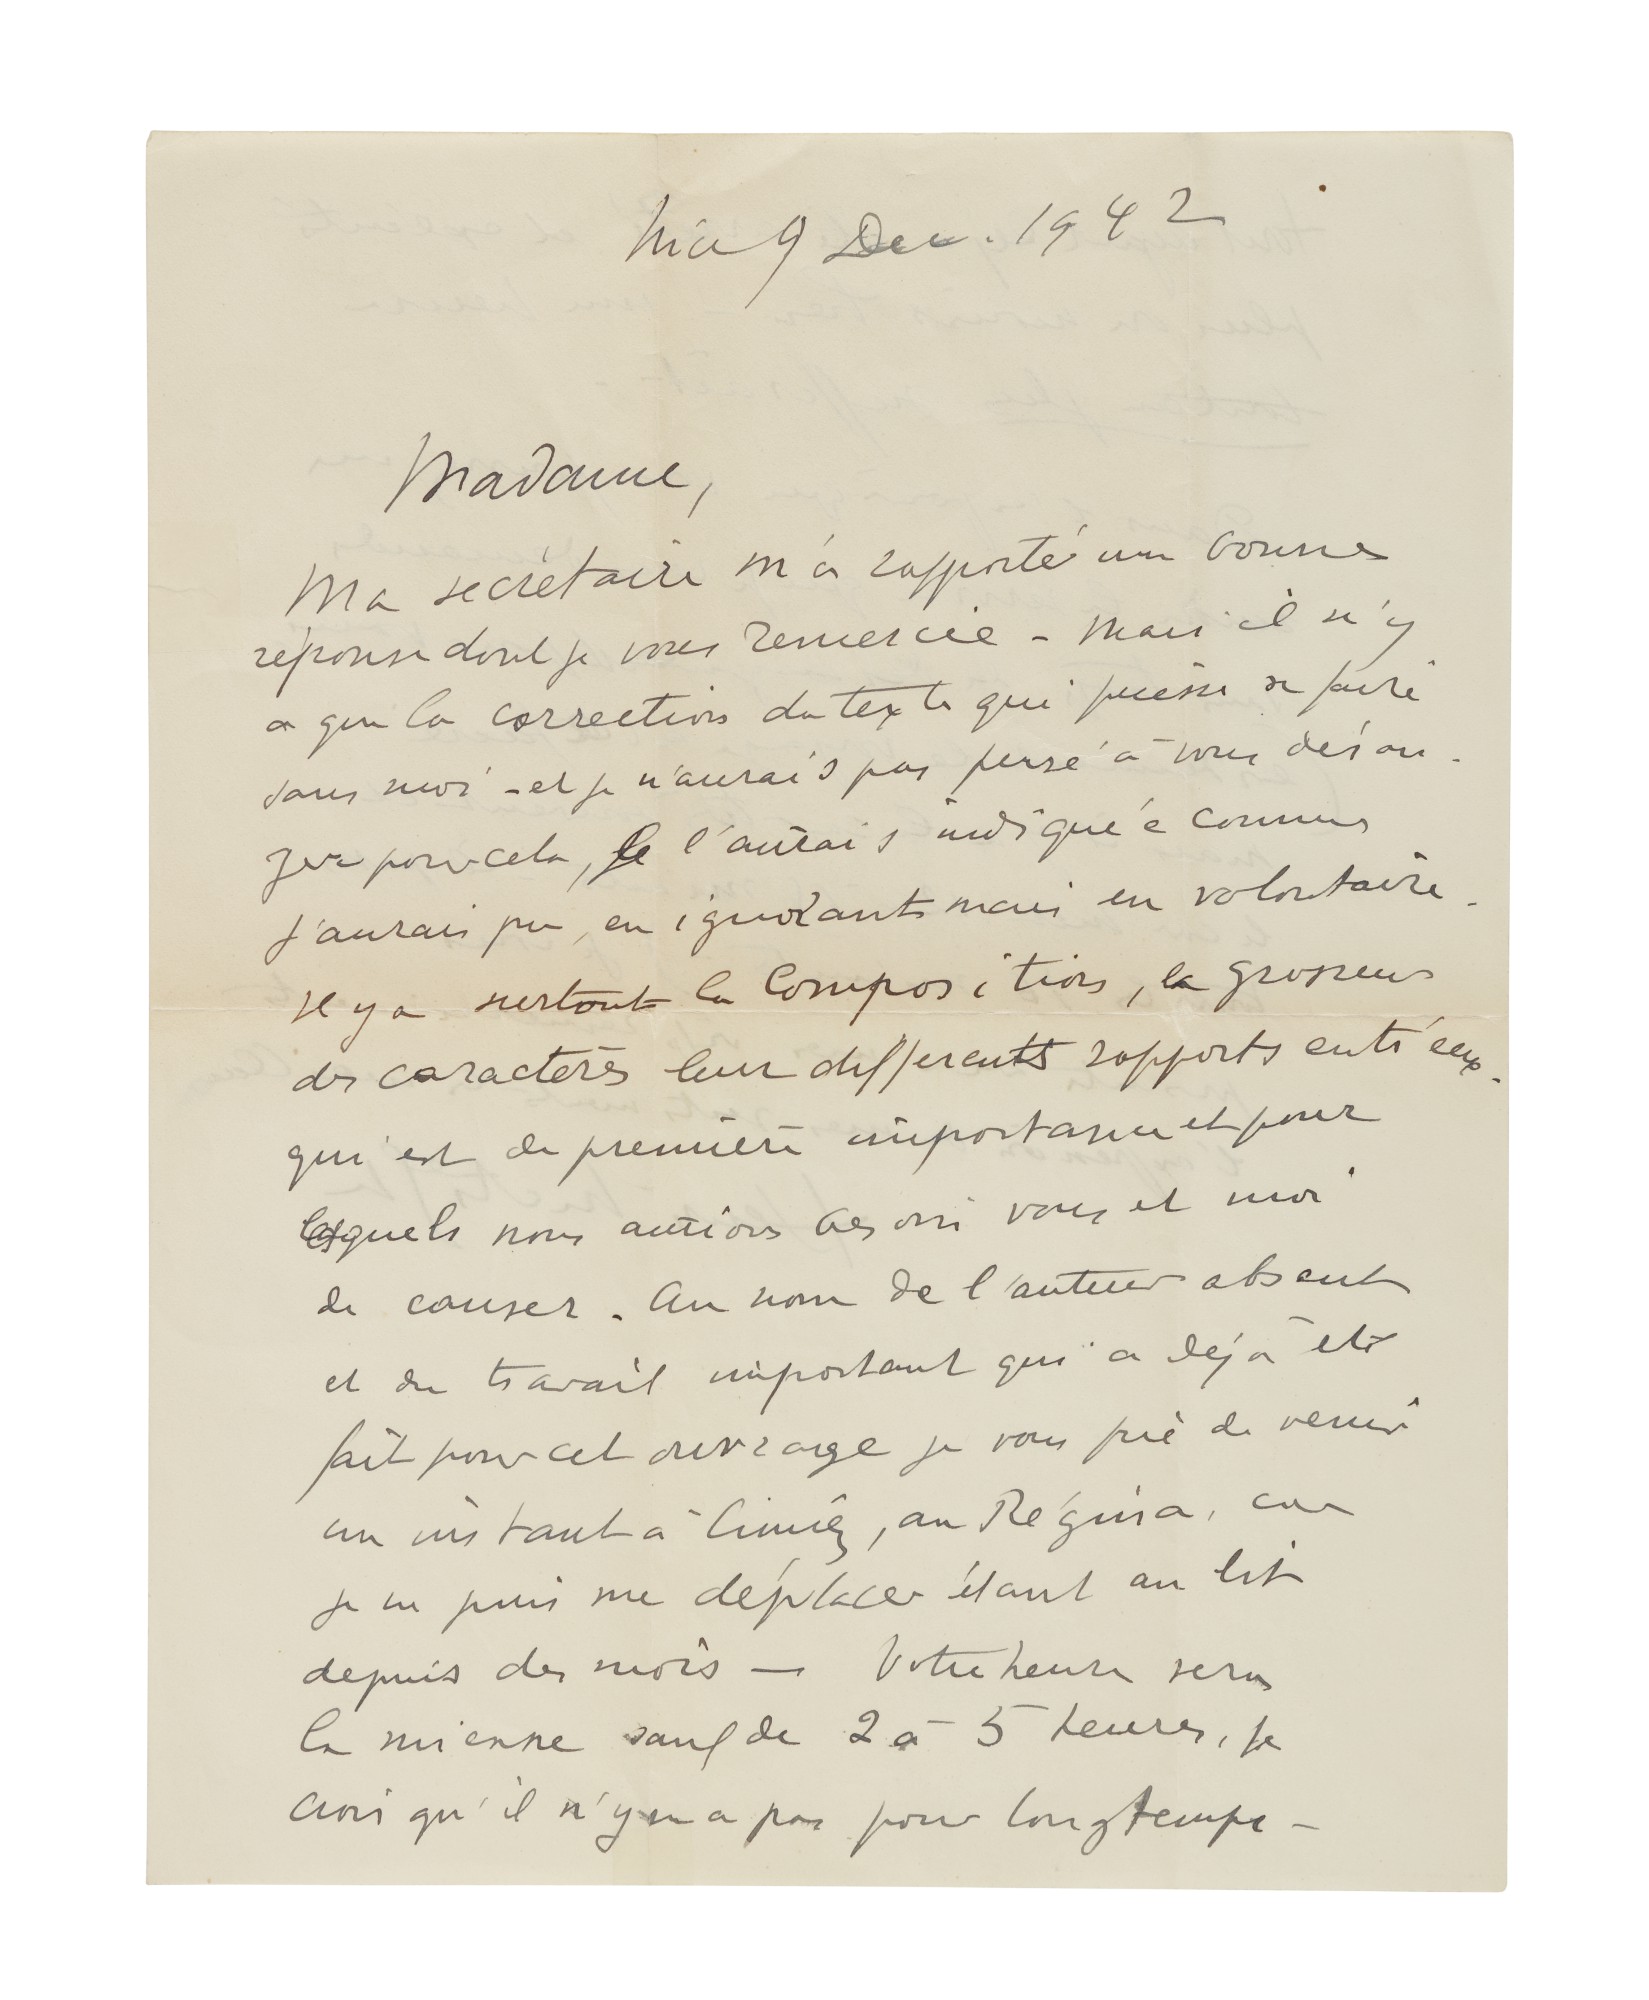 Nice 9 Dec. 1942
Madame,
Ma secrétaire m'a rapporté une bonne
réponse dont je vous remercie - Mais il n'y
a que la correction du texte qui puisse se faire
sans moi - et je n'aurais pas pensé à vous déran-
ger pour cela, je l'aurais indiquée comme
j'aurais pu, en ignorant mais en volontaire -
Il y a surtout la Composition, la grosseur
des caractères leur differents rapports entr'eux -
qui est de première importance et pour
lesquels nous aurions besoin vous et moi
de causer - Au nom de l'auteur absent
et du travail important qui a déjà été
fait pour cet ouvrage je vous prie de venir
un instant à Cimiez, au Régina, car
je ne puis me déplacer étant au lit
depuis des mois — Votre heure sera
la mienne sauf de 2 à 5 heures, je
crois qu'il n'y en a pas pour longtemps -